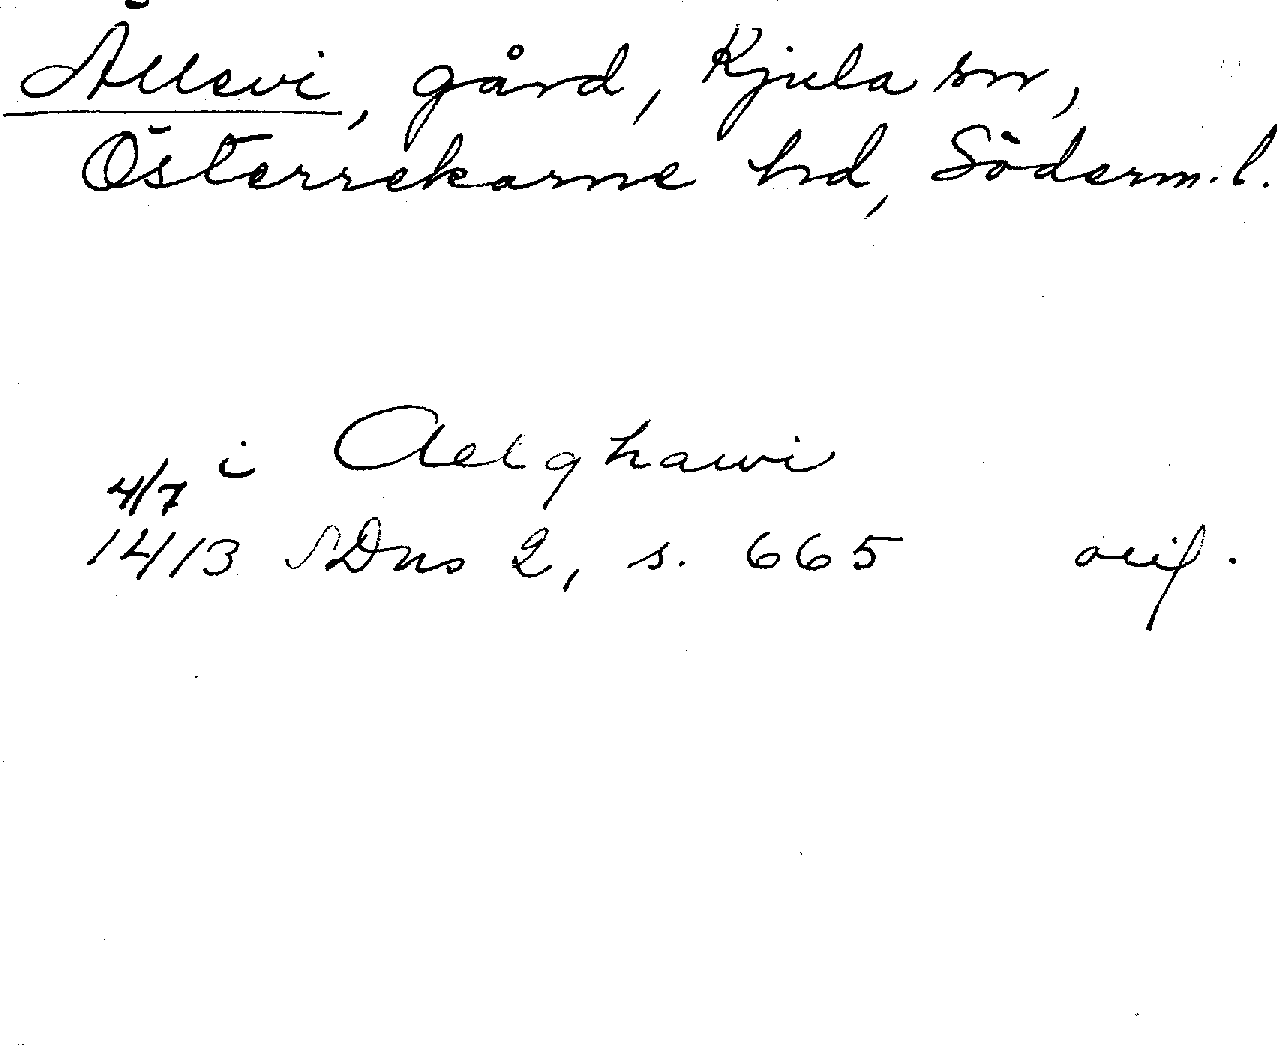 Ållevi, gård, Kjula sn,
Österrekarne hd, Söderm. l.
i Aelghawi
4/7
1413 SDns 2, s. 665 orig.